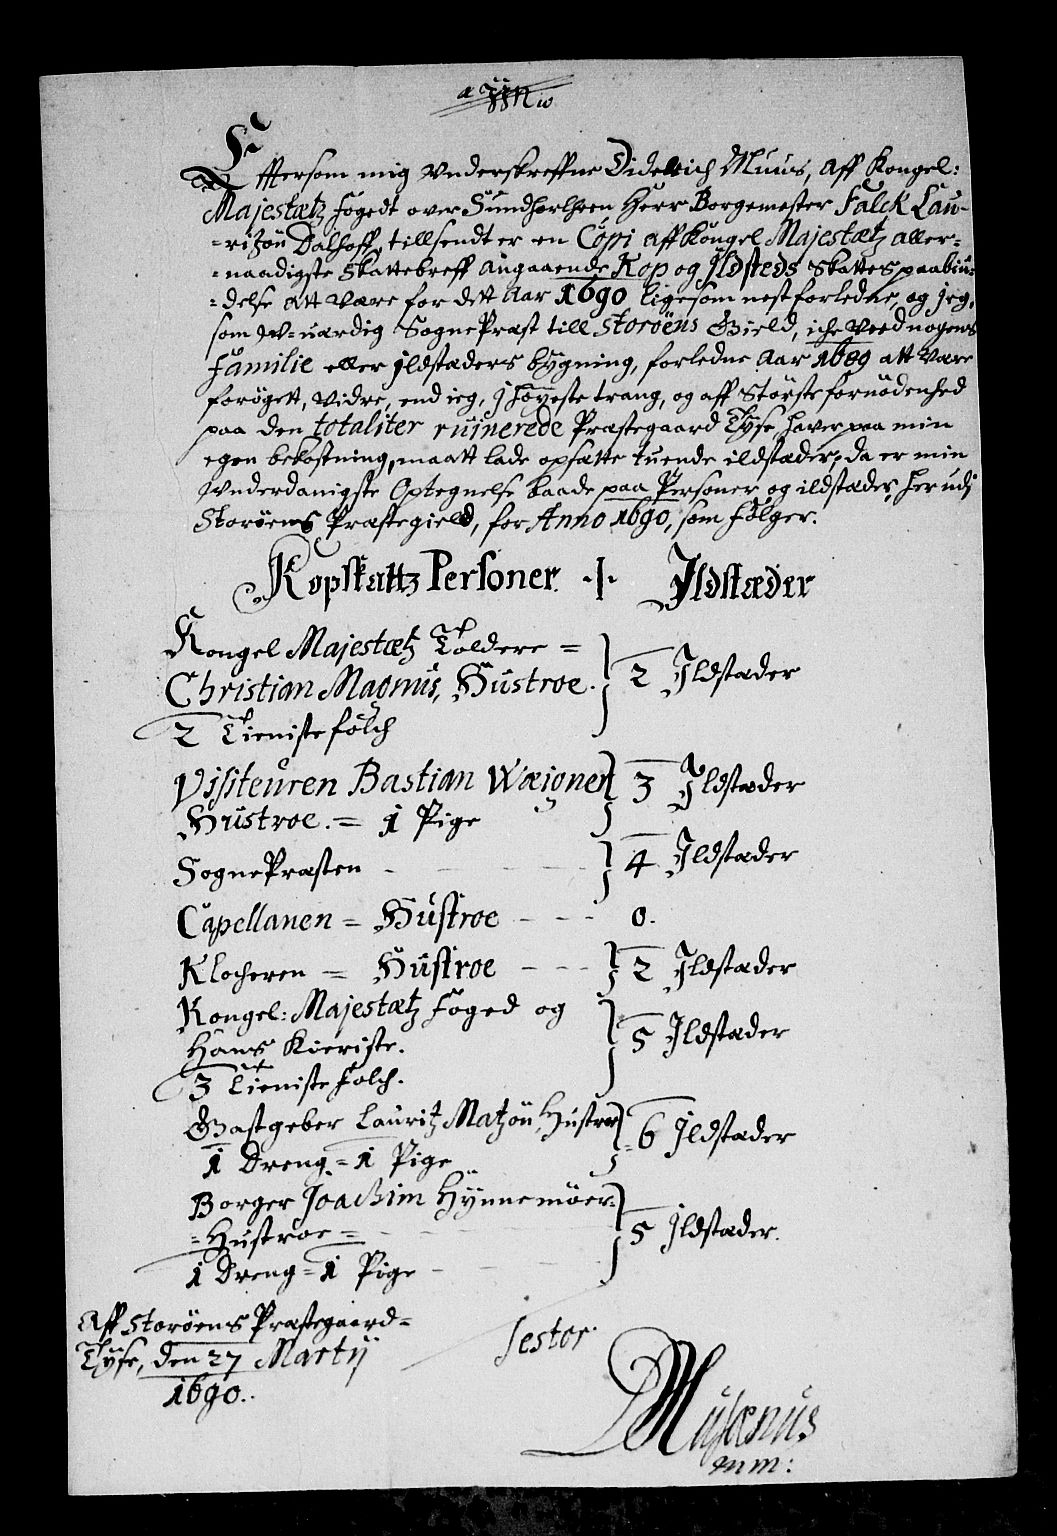 Effterſom mig underſkreffne Diderich Muus, aff Kongel:
Majestætz Fogedt over Sundhorlheen Herr Borgemester Falck Lau-
=ritzøn Dalhoff, tillſendt er en Copi aff Kongel Majestætz aller-
=naadigste Skattebreff angaaende Kop og Ildſteds Skattes paabiu-
=delse att være for dett Aar 1690 ligesom nest forledne, og jeg,
som W-værdig Sogne Præst till Storöens Gield, iche veed nogens
Familie eller Ildstæders bygning, forledne Aar 1689 att være
forögett, vidre, end jeg, j höyeste trang, og aff Störste fornödenhed
paa den totaliter ruinerede Præstegaard Tyſe, haver paa min
egen bekostning, maatt lade opsætte tuende ildstæder; da er min
Underdanigste Optegnelse baade paa Personer og ildstæder, her udj
Storöens Præstegield, for Anno 1690, som fölger.
Kopſkattz Perſoner ÷ Ildſtæder
Kongel Majestætz Toldere =
Christian Magnus, Hustroe. 2 Ildstæder
2 Tieniste fölch
Viſiteuren Bastian Wæioner 3 Ildstæder
Hustroe. = 1 Pige
Sogne Præsten - - - 4 Ildstæder
Capellanen = Huſtroe - - - 0.
Klocheren = Huſtroe - - - 2 Ildstæder
Kongel: Majestætz Foged og
Hans Kieriste. 5 Ildstæder
3 Tieniste Folch.
Gastgeber Lauritz Matzøn Hustroe 6 Ildstæder
1 Dreng = 1 Pige
Borger Joachim Hÿnnemöer
=Hustroe = - - 5 Ildstæder.
1 Dreng = 1 Pige - -
Aff Storöens Præstegaard=
Tyſe, den 27 Martij Testor
1690.
D Musænus
mm: